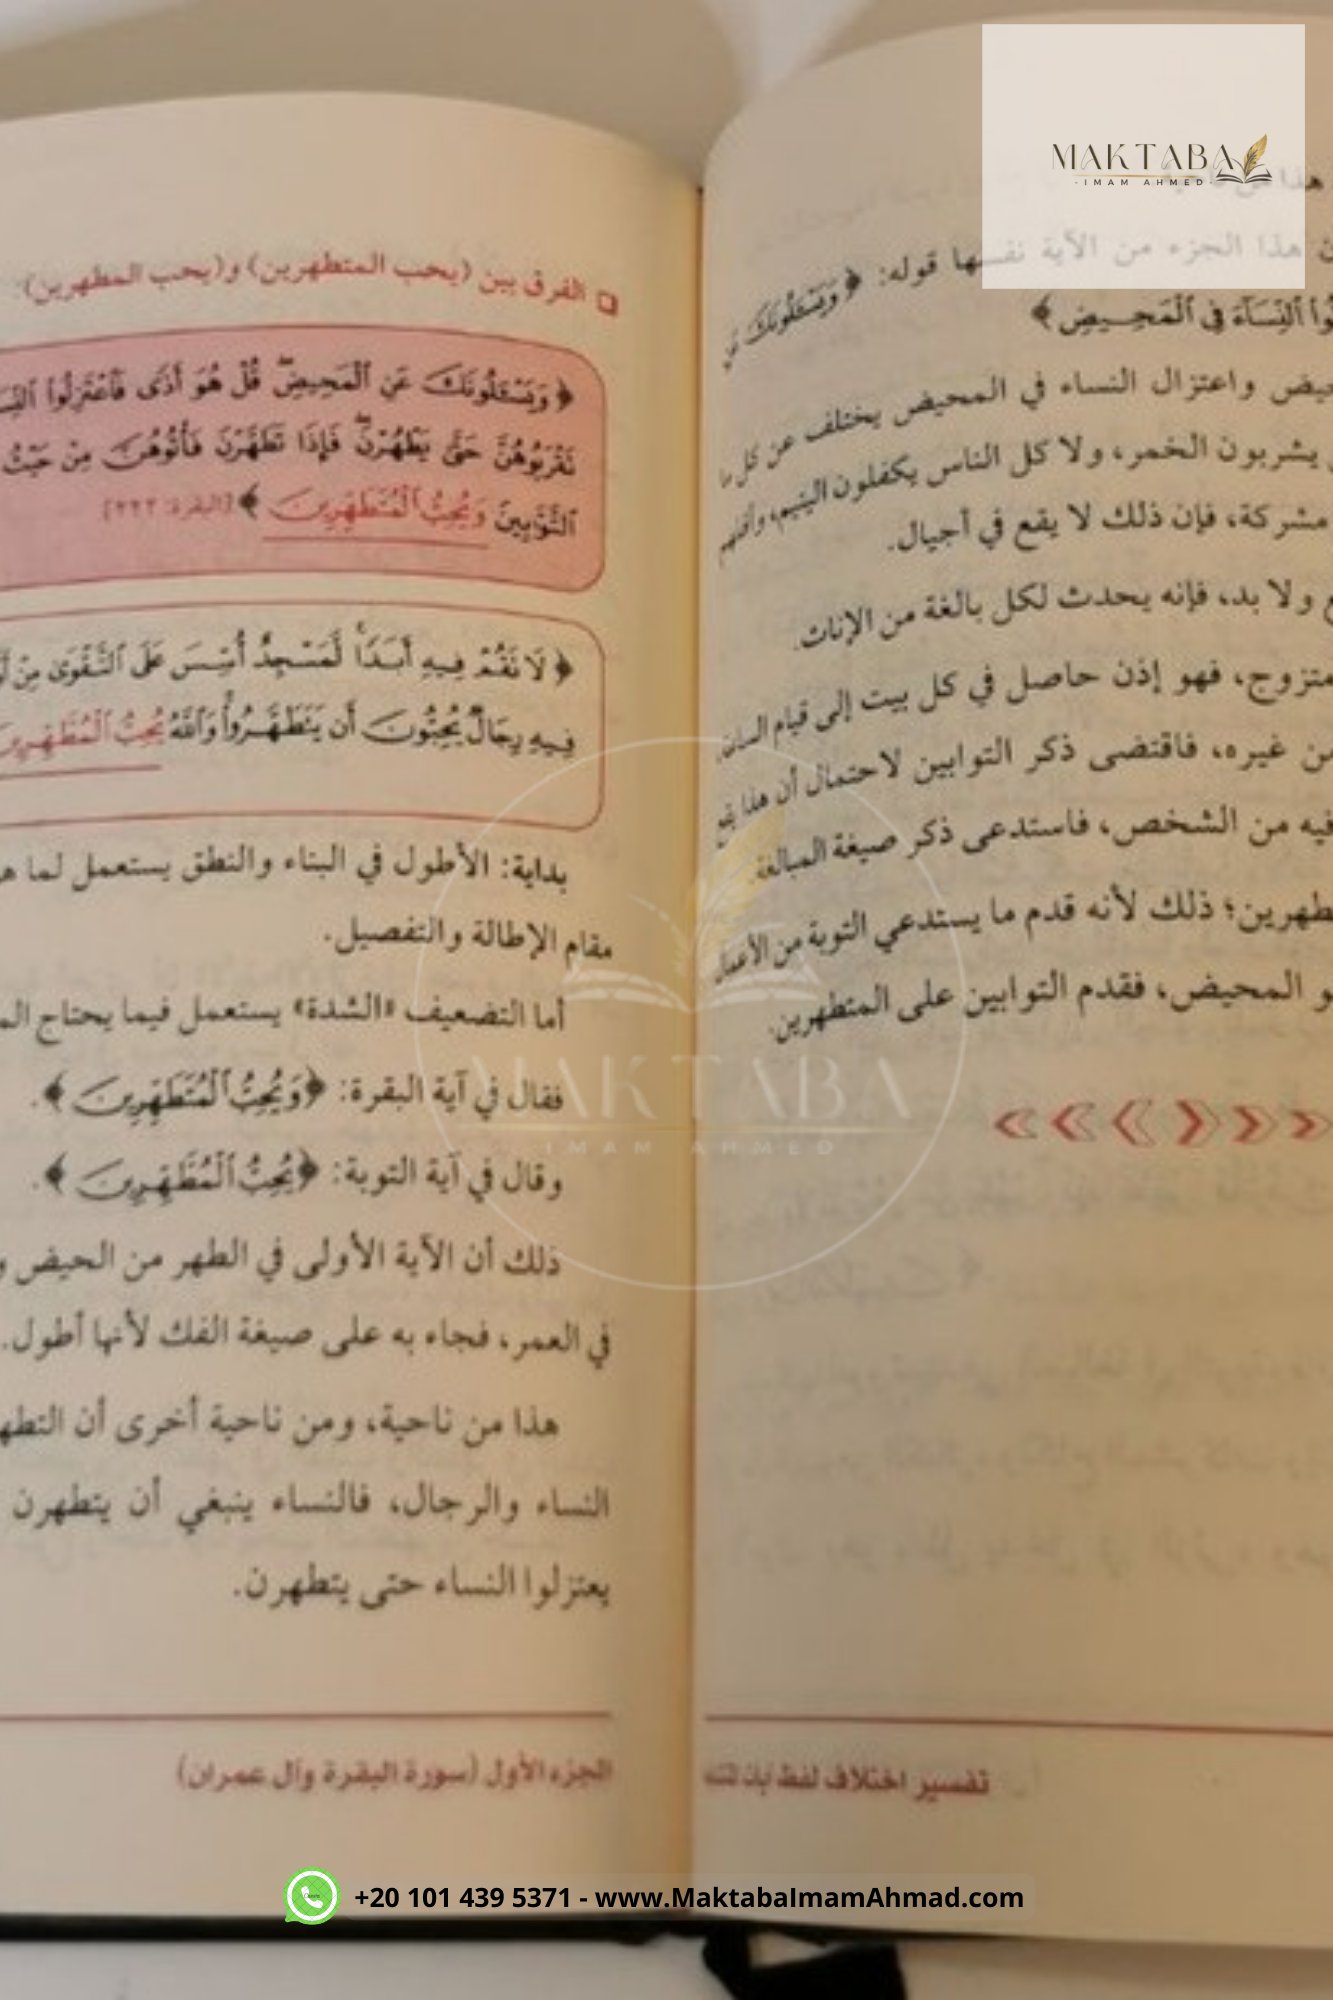 MAKTABA
IMAM AHMED
الفرق بين (يحب المتطهرين) و(يحب المطهرين):
﴿وَيَسْـَٔلُونَكَ عَنِ ٱلْمَحِيضِ قُلْ هُوَ أَذًى فَٱعْتَزِلُوا۟
تَقْرَبُوهُنَّ حَتَّىٰ يَطْهُرْنَ فَإِذَا تَطَهَّرْنَ فَأْتُوهُنَّ مِنْ حَيْثُ
ٱلتَّوَّٰبِينَ وَيُحِبُّ ٱلْمُتَطَهِّرِينَ﴾ [البقرة: ٢٢٢]
﴿لَا تَقُمْ فِيهِ أَبَدًا لَّمَسْجِدٌ أُسِّسَ عَلَى ٱلتَّقْوَىٰ مِنْ
فِيهِ رِجَالٌ يُحِبُّونَ أَن يَتَطَهَّرُوا۟ وَٱللَّهُ يُحِبُّ ٱلْمُطَّهِّرِينَ
بداية: الأطول في البناء والنطق يستعمل لما
مقام الإطالة والتفصيل.
أما التضعيف «الشدة» يستعمل فيما يحتاج
فقال في آية البقرة: ﴿وَيُحِبُّ ٱلْمُتَطَهِّرِينَ﴾.
وقال في آية التوبة: ﴿يُحِبُّ ٱلْمُطَّهِّرِينَ﴾.
ذلك أن الآية الأولى في الطهر من الحيض
في العمر، فجاء به على صيغة الفك لأنها أطول.
هذا من ناحية، ومن ناحية أخرى أن
النساء والرجال، فالنساء ينبغي أن يتطهرن
يعتزلوا النساء حتى يتطهرن.
الجزء الأول (سورة البقرة وآل عمران)
هذا الجزء من الآية نفسها قوله: ﴿وَيَسْـَٔلُونَكَ
ٱلنِّسَآءَ فِى ٱلْمَحِيضِ﴾
واعتزال النساء في المحيض يختلف عن كل ما
يشربون الخمر، ولا كل الناس يكفلون اليتيم،
مشركة، فإن ذلك لا يقع في أجيال.
ولا بد، فإنه يحدث لكل بالغة من الإناث.
فهو إذن حاصل في كل بيت إلى قيام الساعة
من غيره، فاقتضى ذكر التوابين لاحتمال أن هذا يقع
فيه من الشخص، فاستدعى ذكر صيغة المبالغة.
ذلك لأنه قدم ما يستدعي التوبة من الأعمال
المحيض، فقدم التوابين على المتطهرين.
تفسير اختلاف لفظ آيات
MAKTABA
IMAM AHMED
+20 101 439 5371 - www.MaktabaImamAhmad.com